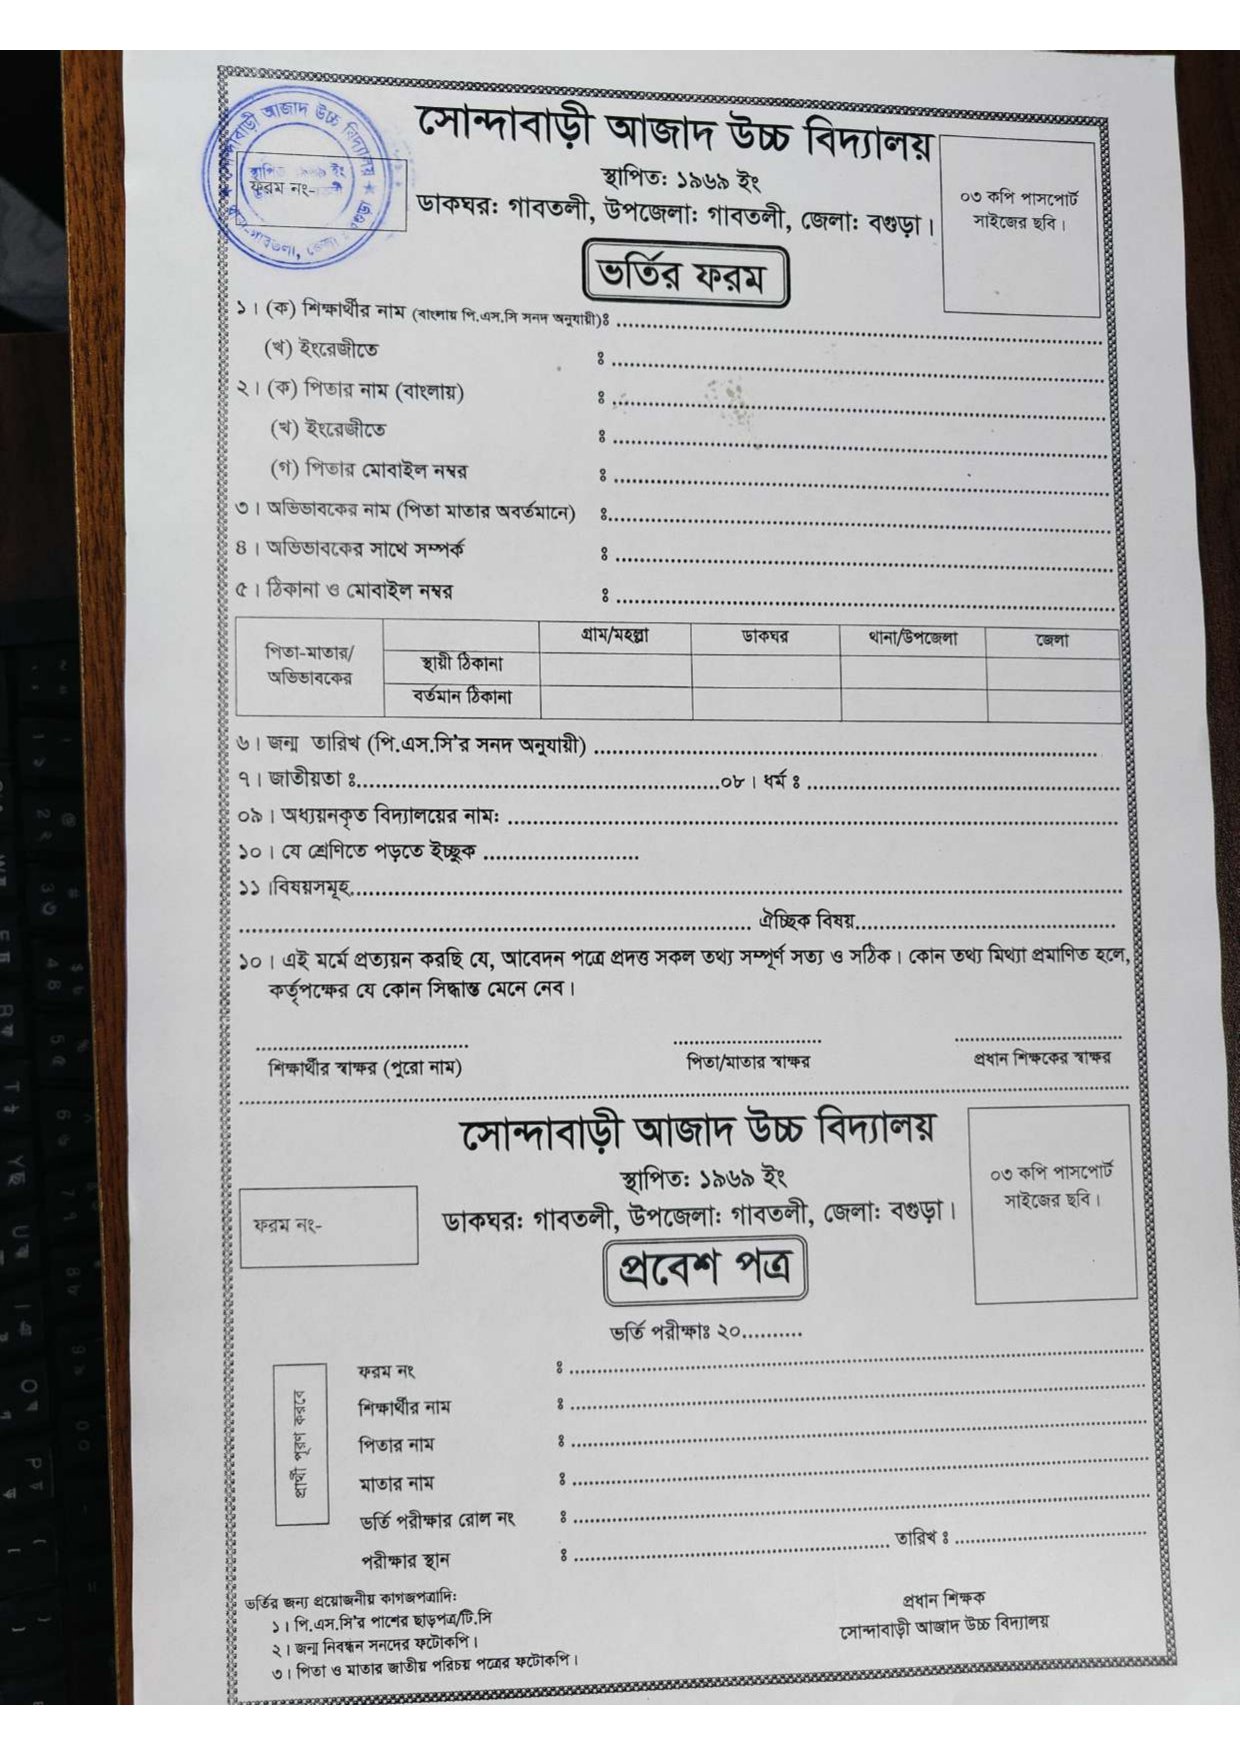 সোন্দাবাড়ী আজাদ উচ্চ বিদ্যালয়
স্থাপিত: ১৯৬৯ ইং
ডাকঘর: গাবতলী, উপজেলা: গাবতলী, জেলা: বগুড়া।
ফরম নং-
০৩ কপি পাসপোর্ট
সাইজের ছবি।
ভর্তির ফরম
১। (ক) শিক্ষার্থীর নাম (বাংলায় পি.এস.সি সনদ অনুযায়ী)ঃ
(খ) ইংরেজীতে ঃ
২। (ক) পিতার নাম (বাংলায়) ঃ
(খ) ইংরেজীতে ঃ
(গ) পিতার মোবাইল নম্বর ঃ
৩। অভিভাবকের নাম (পিতা মাতার অবর্তমানে) ঃ
৪। অভিভাবকের সাথে সম্পর্ক ঃ
৫। ঠিকানা ও মোবাইল নম্বর ঃ
পিতা-মাতার/
অভিভাবকের
গ্রাম/মহল্লা ডাকঘর থানা/উপজেলা জেলা
স্থায়ী ঠিকানা
বর্তমান ঠিকানা
৬। জন্ম তারিখ (পি.এস.সি'র সনদ অনুযায়ী)
৭। জাতীয়তা ঃ ০৮। ধর্ম ঃ
০৯। অধ্যয়নকৃত বিদ্যালয়ের নাম:
১০। যে শ্রেণিতে পড়তে ইচ্ছুক
১১।বিষয়সমূহ
ঐচ্ছিক বিষয়
১০। এই মর্মে প্রত্যয়ন করছি যে, আবেদন পত্রে প্রদত্ত সকল তথ্য সম্পূর্ণ সত্য ও সঠিক। কোন তথ্য মিথ্যা প্রমাণিত হলে,
কর্তৃপক্ষের যে কোন সিদ্ধান্ত মেনে নেব।
শিক্ষার্থীর স্বাক্ষর (পুরো নাম) পিতা/মাতার স্বাক্ষর প্রধান শিক্ষকের স্বাক্ষর
সোন্দাবাড়ী আজাদ উচ্চ বিদ্যালয়
স্থাপিত: ১৯৬৯ ইং
ডাকঘর: গাবতলী, উপজেলা: গাবতলী, জেলা: বগুড়া।
ফরম নং-
০৩ কপি পাসপোর্ট
সাইজের ছবি।
প্রবেশ পত্র
ভর্তি পরীক্ষাঃ ২০..........
প্রার্থী পূরণ করবে
ফরম নং ঃ
শিক্ষার্থীর নাম ঃ
পিতার নাম ঃ
মাতার নাম ঃ
ভর্তি পরীক্ষার রোল নং ঃ
পরীক্ষার স্থান ঃ তারিখ ঃ
ভর্তির জন্য প্রয়োজনীয় কাগজপত্রাদি:
১। পি.এস.সি'র পাশের ছাড়পত্র/টি.সি
২। জন্ম নিবন্ধন সনদের ফটোকপি।
৩। পিতা ও মাতার জাতীয় পরিচয় পত্রের ফটোকপি।
প্রধান শিক্ষক
সোন্দাবাড়ী আজাদ উচ্চ বিদ্যালয়